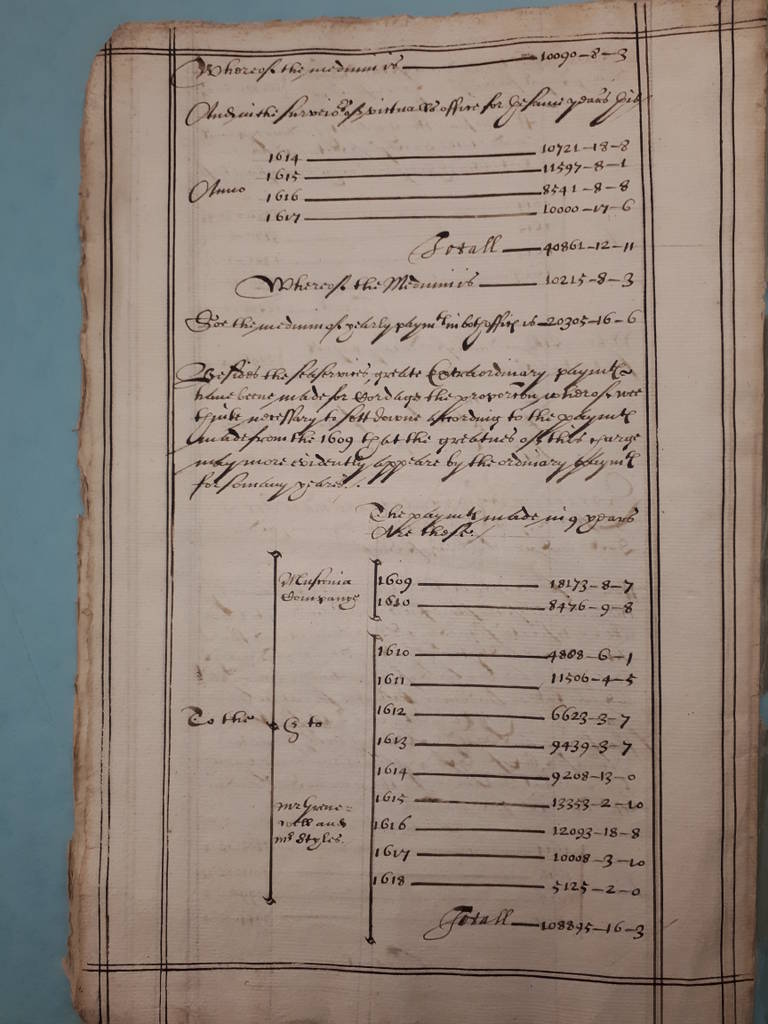 Whereof the medium is 10090-8-3
And in the surveiors of victualls office for ye same years vizt
1614 10721-18-8
1615 11597-8-1
Anno
1616 8541-8-8
1617 10000-17-6
Totall 40861-12-11
Whereof the Medium is 10215-8-3
Soe the medium of yearly paymts in both offices is 20305-16-6
Besides the seaservices, greate Extraordinary paymts
have beene made for Cordage the proporcon whereof wee
thinke necessary to sett downe according to the paymts
made from the 1609 that the greatnes of this charge
may more evidently appeare by the ordinary paymts
for somany yeares.
The paymts made in 9 years
Are these.
Muscovia 1609 18173-8-7
Company 1610 8476-9-8
1610 4888-6-1
1611 11506-4-5
1612 6623-3-7
To the & to
1613 9439-3-7
1614 9208-13-0
mr Grene=
1615 13353-2-10
well and
1616 12093-18-8
mr Styles.
1617 10008-3-10
1618 5125-2-0
Totall 108895-16-3